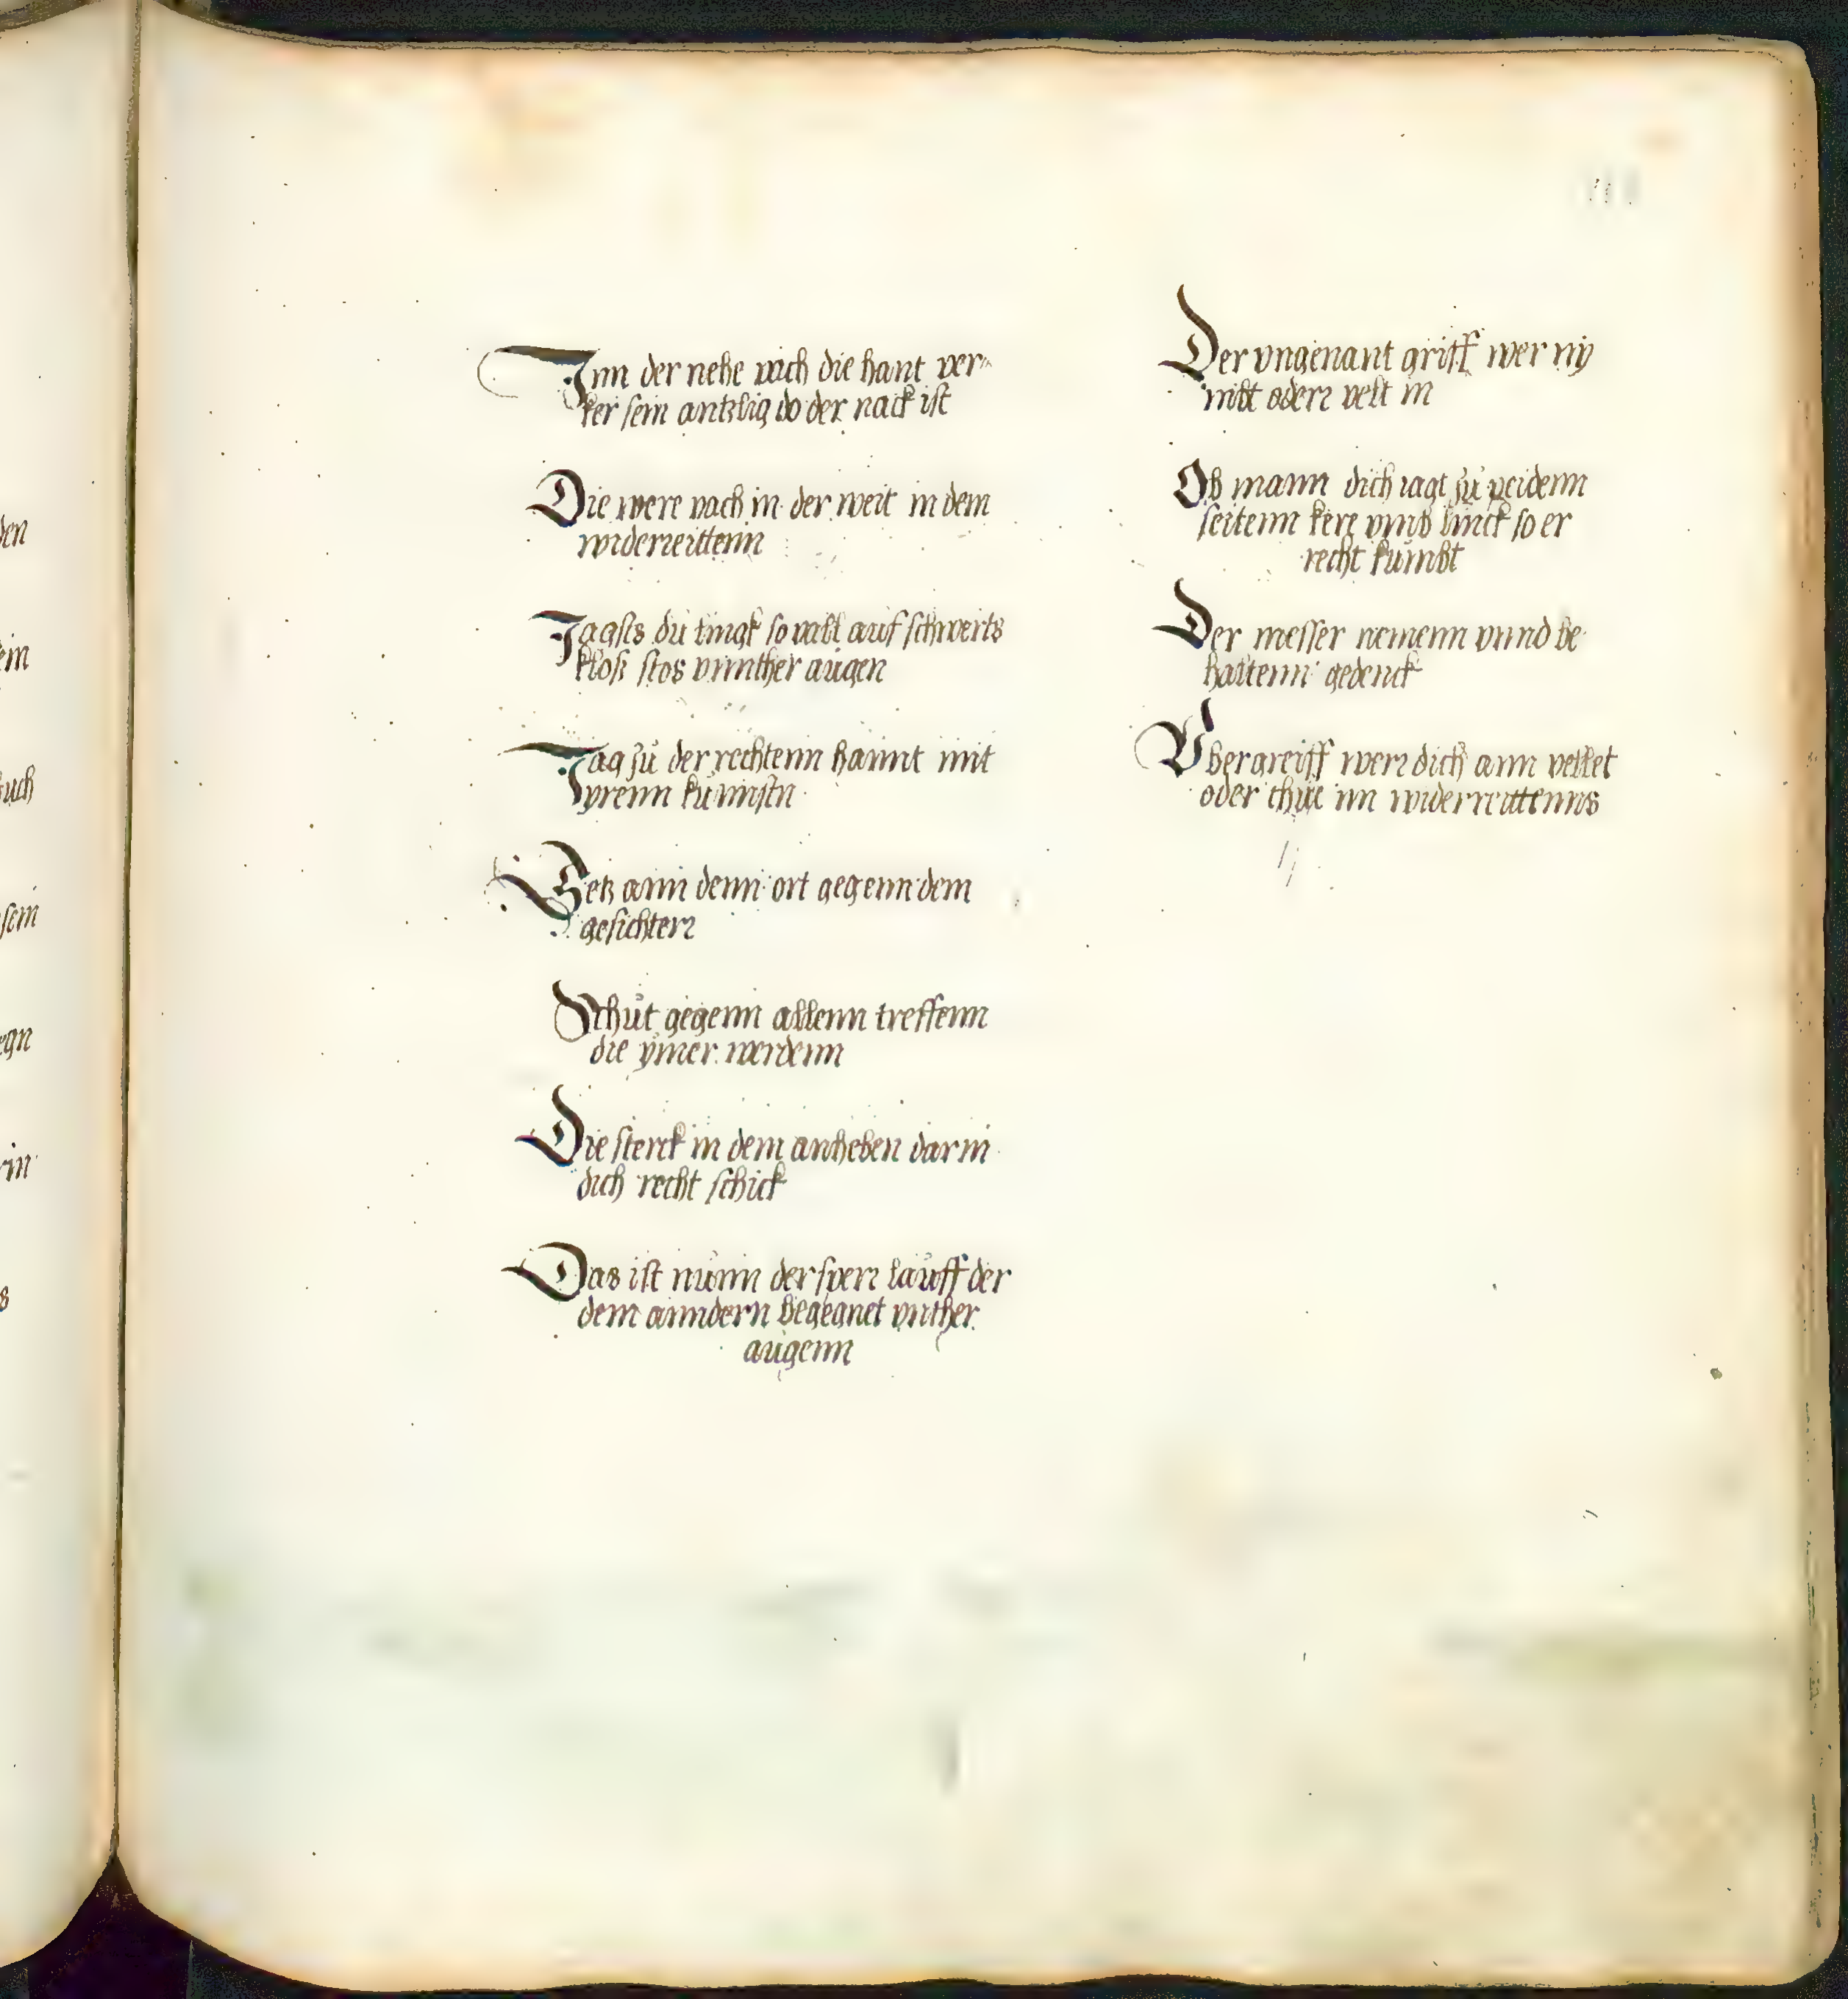 Inn der nehe vach die hant ver-
ker sein antzlig do der nack ist
Die were vach in der weit in dem
widerreittenn
Jagsts du lingk so vall auf schwerts
kloß stos vnnther augen
Jag zu der rechtenn hannt mit
yrenn kunnstn
Setz ann denn ort gegenn dem
gesichterr
Schut gegenn allenn treffenn
die ymer werdenn
Die sterck in dem anheben darin
dich recht schick
Das ist nunn der sperr lauff der
dem anndern begegnet vnther
augenn
Der vngenant griff wer ny
mbt oderr velt in
Ob mann dich iagt zu peidenn
seitenn kere vmb linck so er
recht kumbt
Der messer nemenn vnnd be
haltenn gedenck
Vbergreiff werr dich ann vellet
oder thue im widerreittenns
den
ein
uch
sein
egn
rin
s